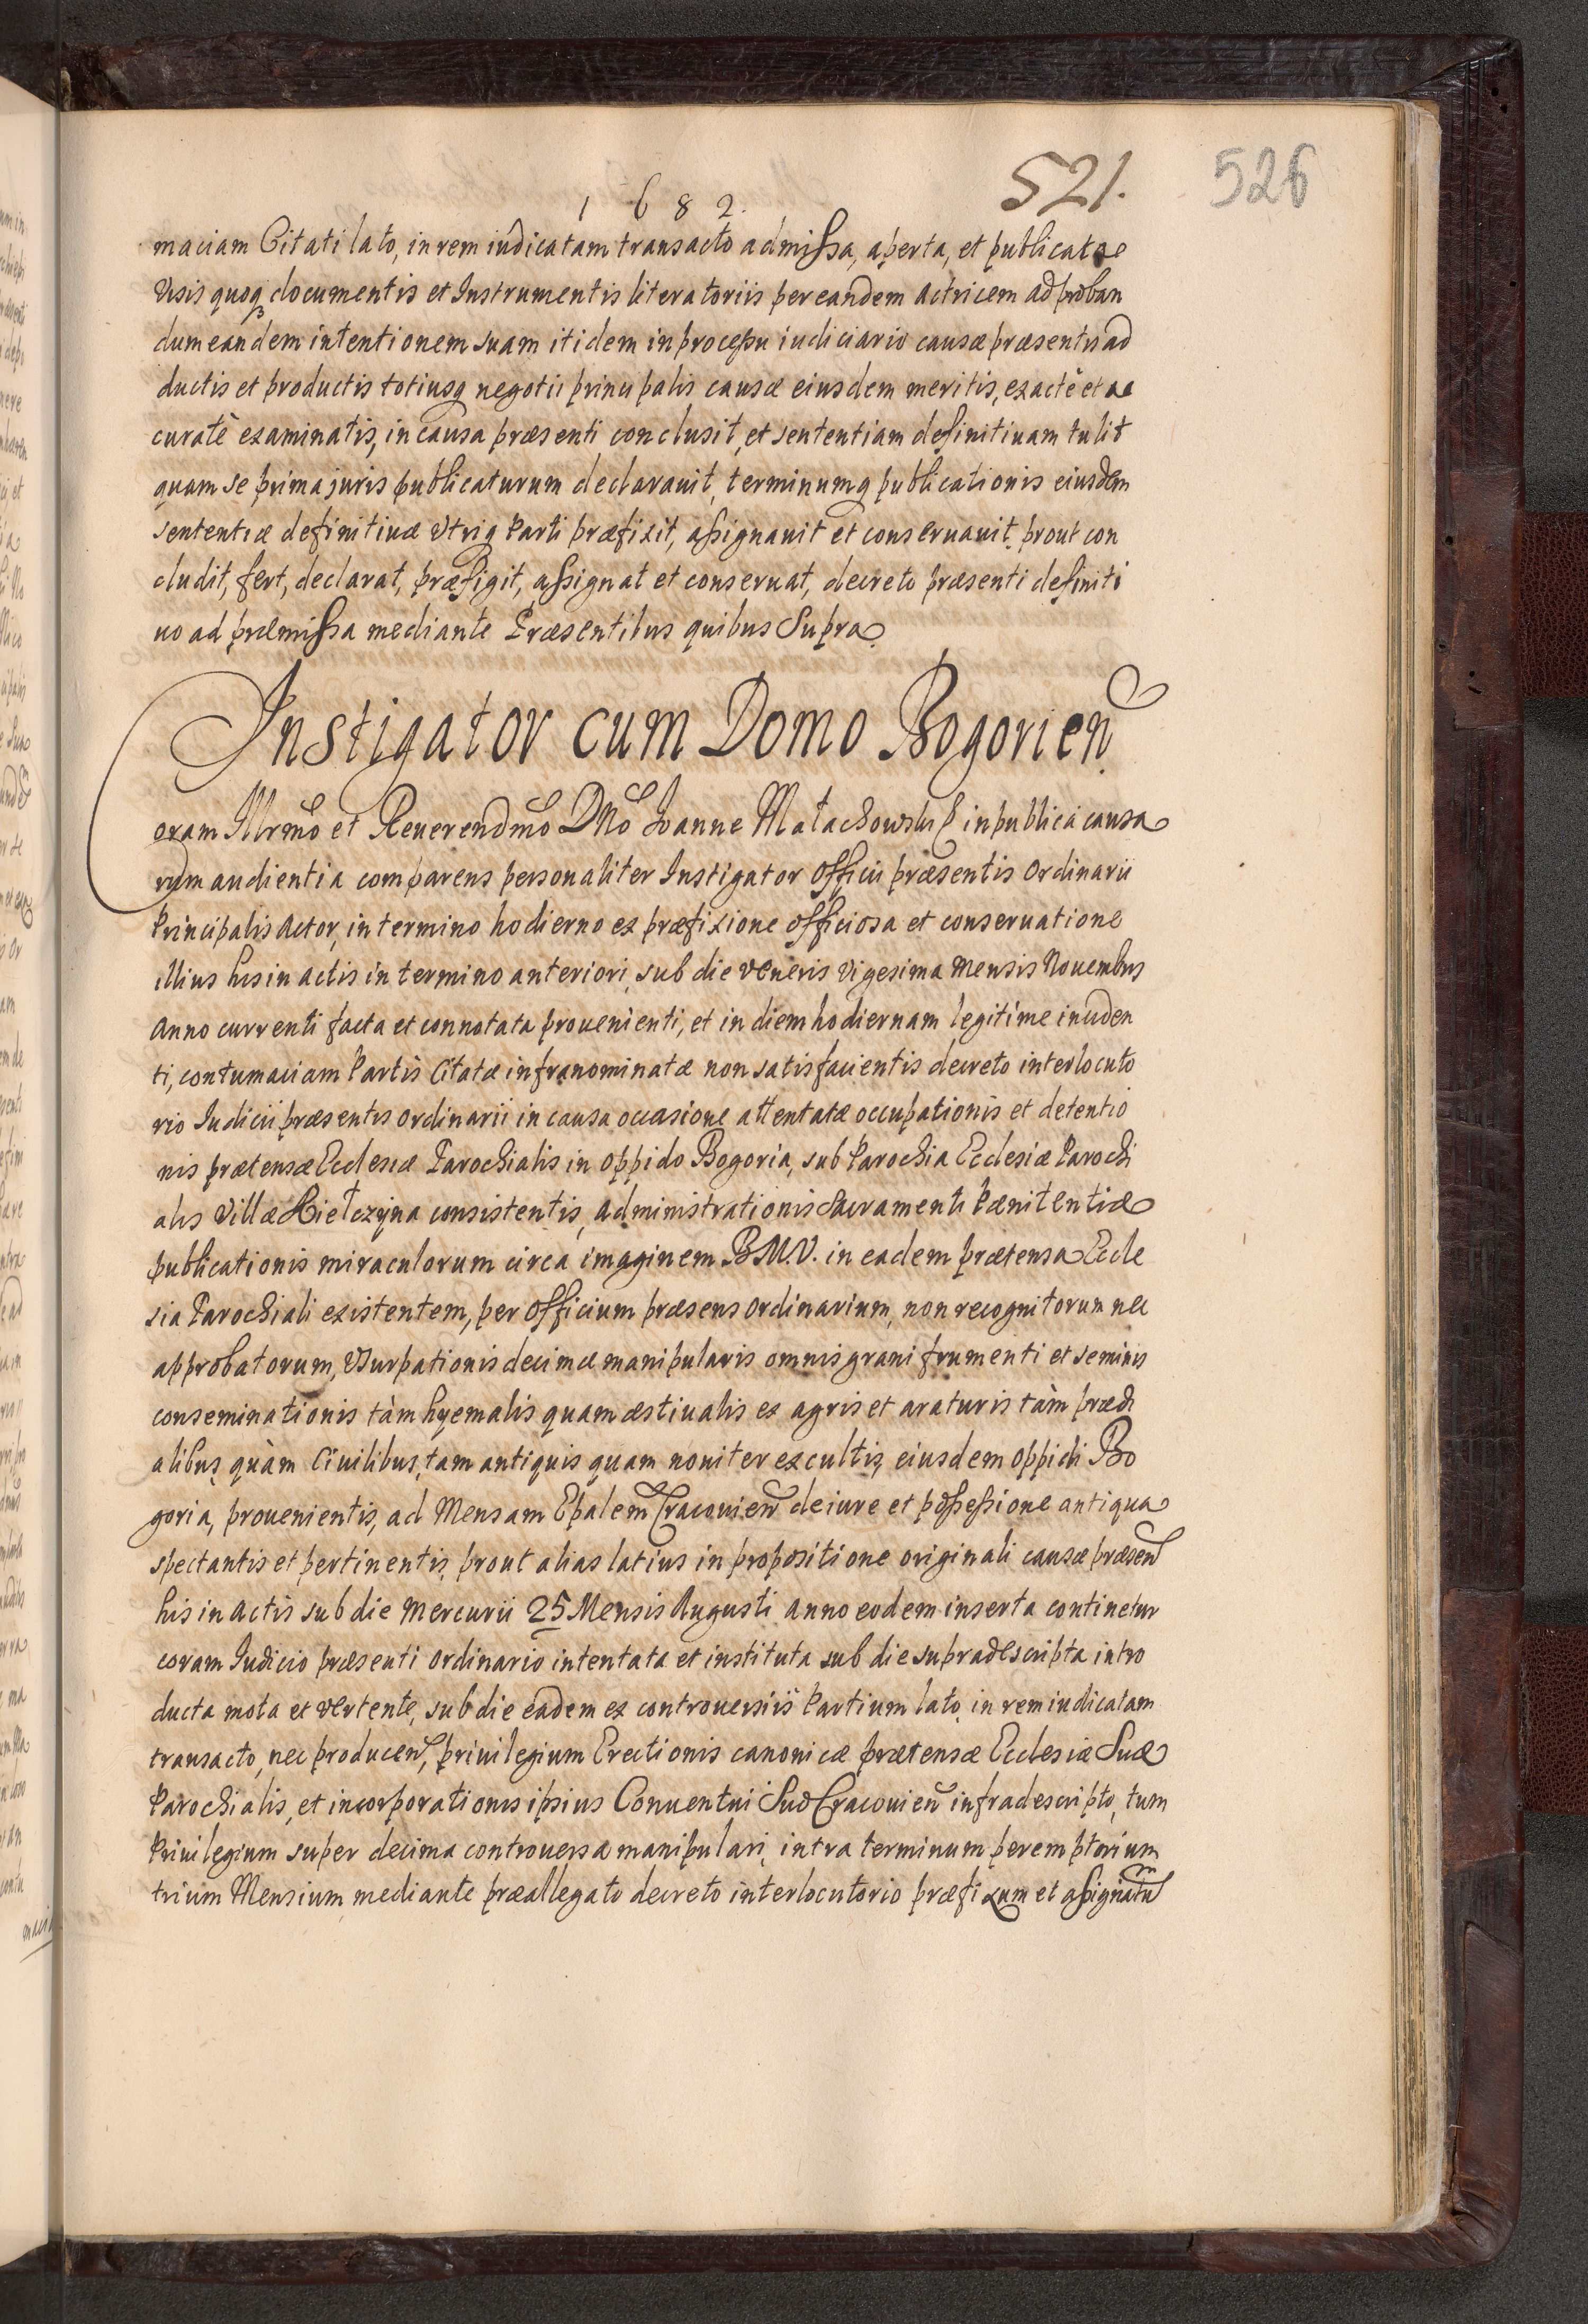 1682.
521.
526
maciam Citati lato, in rem iudicatam transacto admissa, aperta, et publicatae
Usis quoq documentis et Instrumentis literatoriis per eandem Actricem ad proban
dum eandem intentionem suam itidem in processu iudiciario causæ præsentis ad
ductis et productis totiusq negotii principalis causæ eiusdem meritis, exactè et ac
curatè examinatis, in causa præsenti conclusit, et sententiam definitiuam tulit
quam se prima juris publicaturum declarauit, terminumq publicationis eiusdem
sententiæ definitiuæ Utriq Parti præfixit, assignauit et conseruauit. prout con
cludit, fert, declarat, præfigit, assignat et conseruat, decreto præsenti definiti
uo ad præmissa mediante Præsentibus quibus Supra
Instigator cum Domo Bogorien
Coram Illrmo et Reuerendmo Dno Ioanne Małachowski in publica causa
rum audientia comparens personaliter Instigator Officii præsentis Ordinarii
Principalis Actor, in termino hodierno ex præfixione officiosa et conseruatione
illius his in actis in termino anteriori, sub die Veneris Vigesima Mensis Nouembris
Anno currenti facta et connotata prouenienti, et in diem hodiernam legitime inciden
ti, contumaciam Partis Citatæ infranominatæ non satisfacientis decreto interlocuto
rio Iudicii præsentis Ordinarii in causa occasione attentatæ occupationis et detentio
nis prætensæ Ecclesiæ Parochialis in Oppido Bogoria, sub Parochia Ecclesiæ Parochi
alis Villæ Kiełczyna consistentis, Administrationis Sacramenti Pænitentiæ
publicationis miraculorum circa imaginem B.M.V. in eadem prætensa Eccle
sia Parochiali existentem, per Officium præsens Ordinarium, non recognitorum nec
approbatorum, Usurpationis decimæ manipularis omnis grani frumenti et seminis
conseminationis tàm hyemalis quam æstiualis ex agris et araturis tàm prædi
alibus, quàm Ciuilibus, tam antiquis quam nouiter excultis, eiusdem Oppidi Bo
goria, prouenientis, ad Mensam Epalem Cracouien de iure et possessione antiqua
spectantis et pertinentis, prout alias latius in propositione originali causæ præsen
his in Actis sub die Mercurii 25 Mensis Augusti Anno eodem inserta continetur
coram Iudicio præsenti Ordinario intentata et instituta sub die supradescripta intro
ducta mota et Vertente, sub die eadem ex controuersiis Partium lato, in rem iudicatam
transacto, nec producen, priuilegium Erectionis canonicæ prætensæ Ecclesiæ Suæ
Parochialis, et incorporationis ipsius Conuentui Suo Cracouien infradescripto, tum
Priuilegium super decima controuersa manipulari, intra terminum peremptorium
trium Mensium mediante præallegato decreto interlocutorio præfixum et assignatu